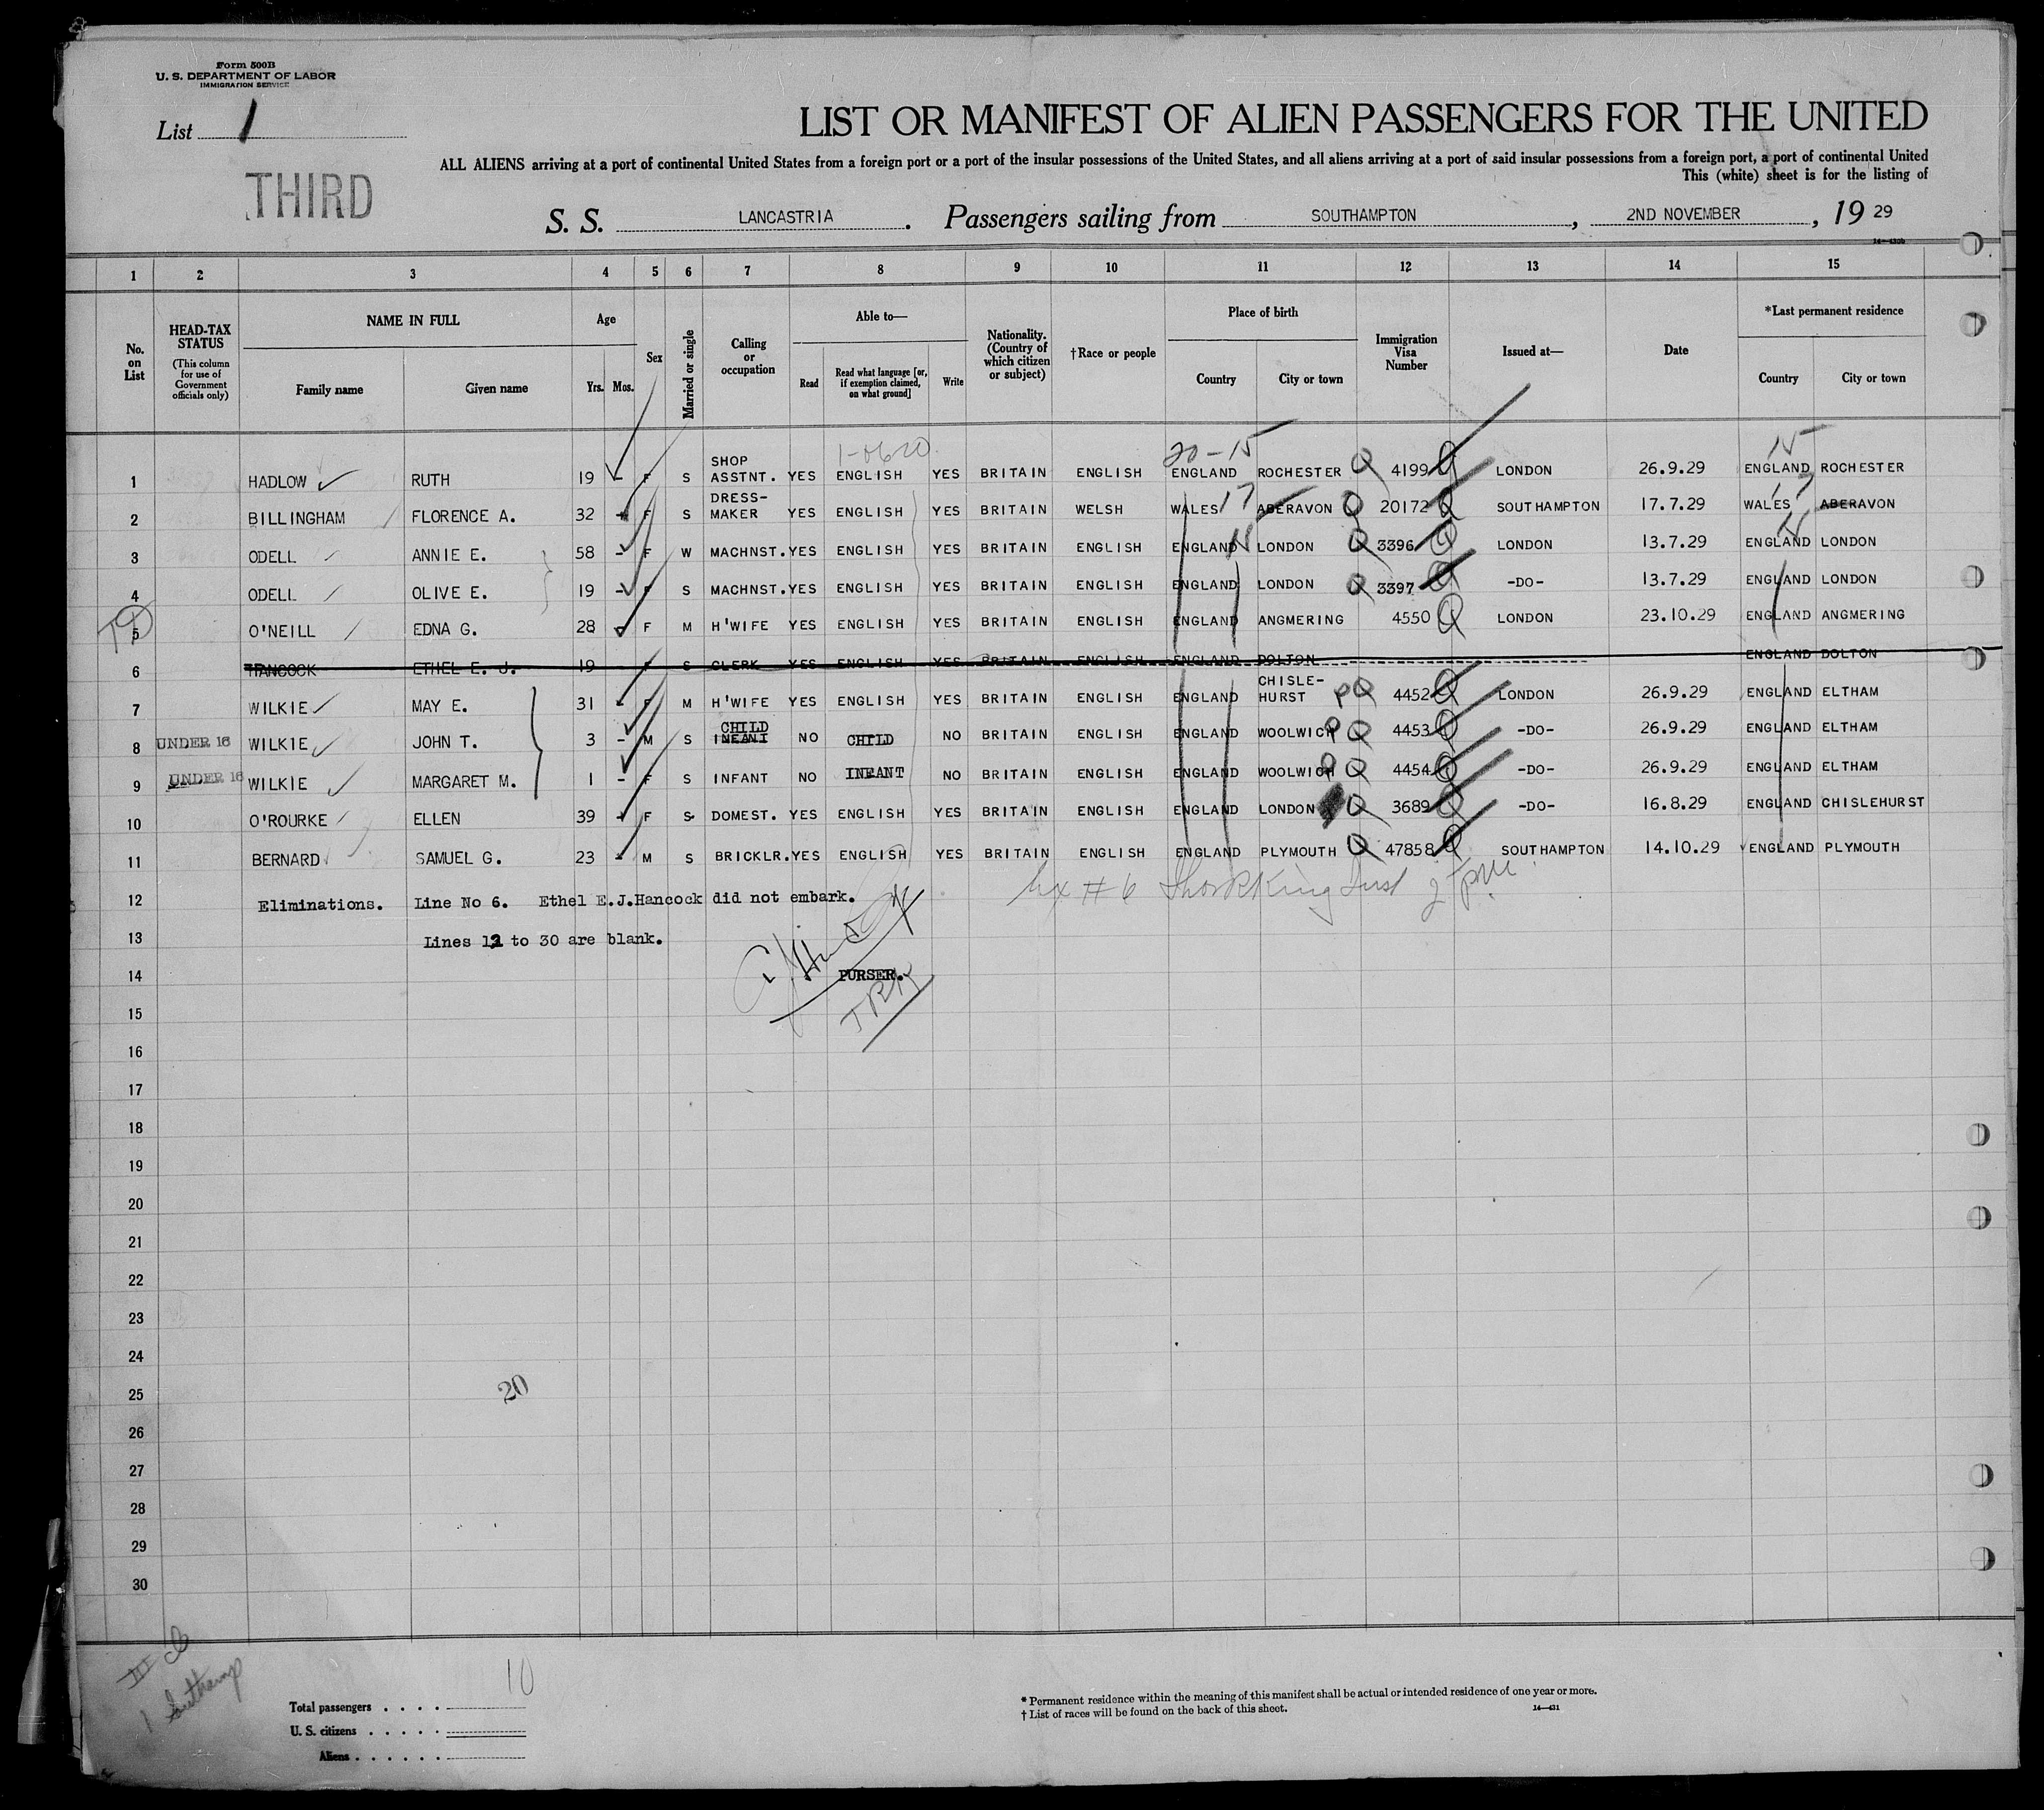 Form 500B
U. S. DEPARTMENT OF LABOR
IMMIGRATION SERVICE
List 1
THIRD
LIST OR MANIFEST OF ALIEN PASSENGERS FOR THE UNITED
ALL ALIENS arriving at a port of continental United States from a foreign port or a port of the insular possessions of the United States, and all aliens arriving at a port of said insular possessions from a foreign port, a port of continental United
This (white) sheet is for the listing of
S. S. LANCASTRIA. Passengers sailing from SOUTHAMPTON, 2ND NOVEMBER, 19 29
1 2 3 4 5 6 7 8 9 10 11 12 13 14 15
No. on List
HEAD-TAX STATUS (This column for use of Government officials only)
NAME IN FULL
Family name Given name
Age
Yrs. Mos.
Sex
Married or single
Calling or occupation
Able to—
Read
Read what language [or, if exemption claimed, on what ground]
Write
Nationality. (Country of which citizen or subject)
†Race or people
Place of birth
Country City or town
Immigration Visa Number
Issued at—
Date
*Last permanent residence
Country City or town
20-15 15
1 HADLOW RUTH 19 - F S SHOP ASSTNT. YES ENGLISH YES BRITAIN ENGLISH ENGLAND ROCHESTER 4199 LONDON 26.9.29 ENGLAND ROCHESTER
2 BILLINGHAM FLORENCE A. 32 - F S DRESS-MAKER YES ENGLISH YES BRITAIN WELSH WALES 17 ABERAVON 20172 SOUTHAMPTON 17.7.29 WALES 17 ABERAVON
3 ODELL ANNIE E. 58 - F W MACHNST. YES ENGLISH YES BRITAIN ENGLISH ENGLAND LONDON 3396 LONDON 13.7.29 ENGLAND LONDON
4 ODELL OLIVE E. 19 - F S MACHNST. YES ENGLISH YES BRITAIN ENGLISH ENGLAND LONDON 3397 -DO- 13.7.29 ENGLAND LONDON
5 O'NEILL EDNA G. 28 - F M H'WIFE YES ENGLISH YES BRITAIN ENGLISH ENGLAND ANGMERING 4550 LONDON 23.10.29 ENGLAND ANGMERING
6 HANCOCK ETHEL E. J. 19 F S CLERK YES ENGLISH YES BRITAIN ENGLISH ENGLAND DOLTON ENGLAND DOLTON
7 WILKIE MAY E. 31 - F M H'WIFE YES ENGLISH YES BRITAIN ENGLISH ENGLAND CHISLE-HURST 4452 LONDON 26.9.29 ENGLAND ELTHAM
8 UNDER 16 WILKIE JOHN T. 3 - M S INFANT CHILD NO CHILD NO BRITAIN ENGLISH ENGLAND WOOLWICH 4453 -DO- 26.9.29 ENGLAND ELTHAM
9 UNDER 16 WILKIE MARGARET M. 1 - F S INFANT NO INFANT NO BRITAIN ENGLISH ENGLAND WOOLWICH 4454 -DO- 26.9.29 ENGLAND ELTHAM
10 O'ROURKE ELLEN 39 - F S. DOMEST. YES ENGLISH YES BRITAIN ENGLISH ENGLAND LONDON 3689 -DO- 16.8.29 ENGLAND CHISLEHURST
11 BERNARD SAMUEL G. 23 - M S BRICKLR. YES ENGLISH YES BRITAIN ENGLISH ENGLAND PLYMOUTH 47858 SOUTHAMPTON 14.10.29 ENGLAND PLYMOUTH
12 Eliminations. Line No 6. Ethel E.J.Hancock did not embark.
13 Lines 12 to 30 are blank.
14 PURSER.
15
16
17
18
19
20
21
22
23
24
25
20
26
27
28
29
30
III
1 Southamp
Total passengers . . . . 10
U. S. citizens . . . . .
Aliens . . . . . .
* Permanent residence within the meaning of this manifest shall be actual or intended residence of one year or more.
† List of races will be found on the back of this sheet.
14—431